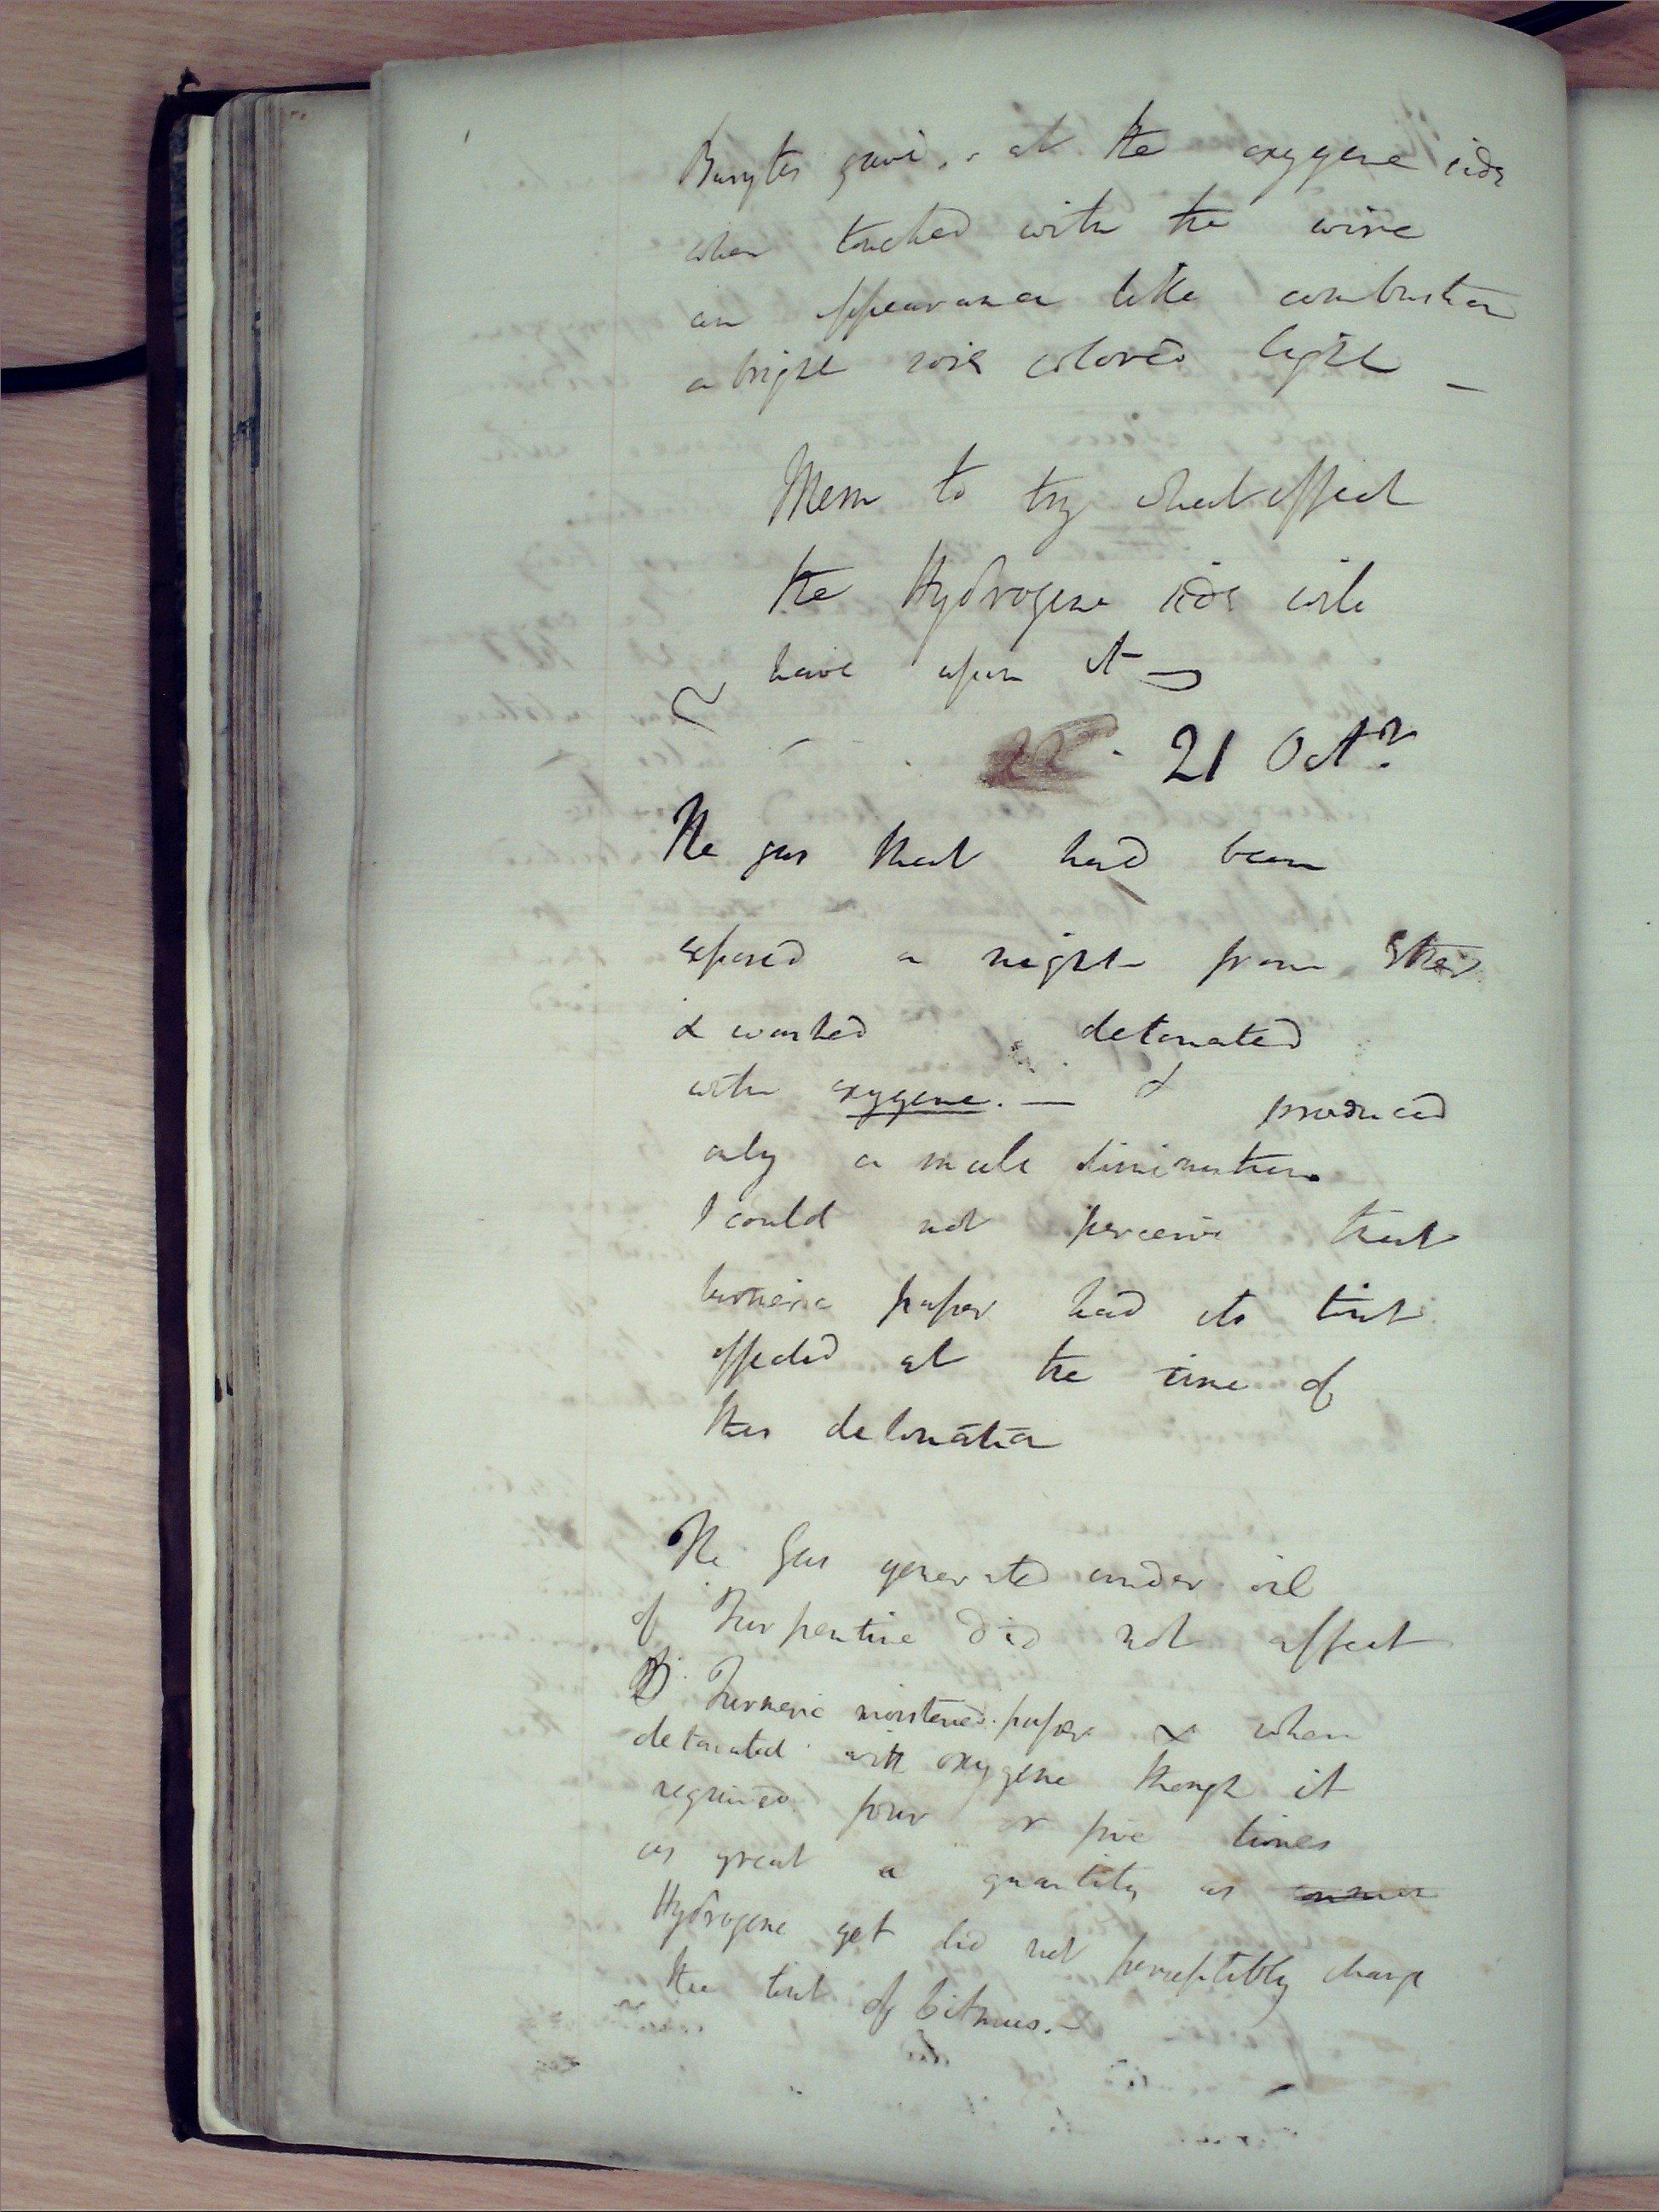 Barytes gave, at the oxygene side
when touched with the wire
an appearance like combustion
a bright rose colored light —
Mem to try what effect
the Hydrogene side will
have upon it —
22 21 Octr.
The gas that had been
exposed a night from Ether
& washed detonated
with oxygene. — & produced
only a small diminution.
I could not perceive that
turmeric paper had its tint
affected at the time of
this detonation
The Gas generated under oil
of Turpentine did not affect
Turmeric moistened paper & when
detonated with oxygene though it
required four or five times
as great a quantity as
Hydrogene yet did not perceptibly change
the tint of litmus. -